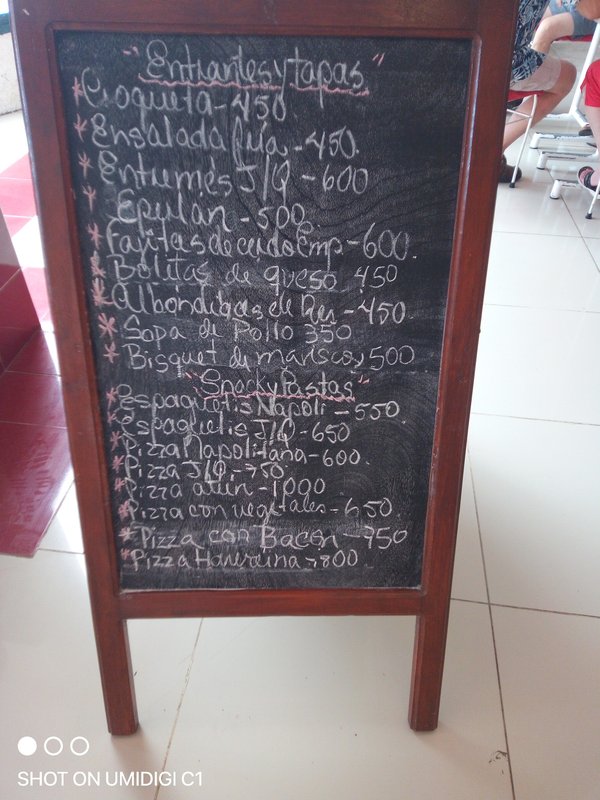 "Entrantes y tapas"
* Croqueta - 450
* Ensalada fría - 450.
* Entremés J/Q - 600
* - 500
* Fajitas de cerdo Emp - 600.
* Bolitas de queso 450
* Albóndigas de Res - 450.
* Sopa de Pollo 350
* Bisquet de mariscos 500
"Snack y Pastas"
* Espaguetis Napoli - 550
* Espaguetis J/Q - 650
* Pizza Napolitana - 600.
* Pizza J/Q - 750
* Pizza atún - 1000
* Pizza con vegetales - 650.
* Pizza con Bacon - 950
* Pizza Hawaiana - 800
SHOT ON UMIDIGI C1